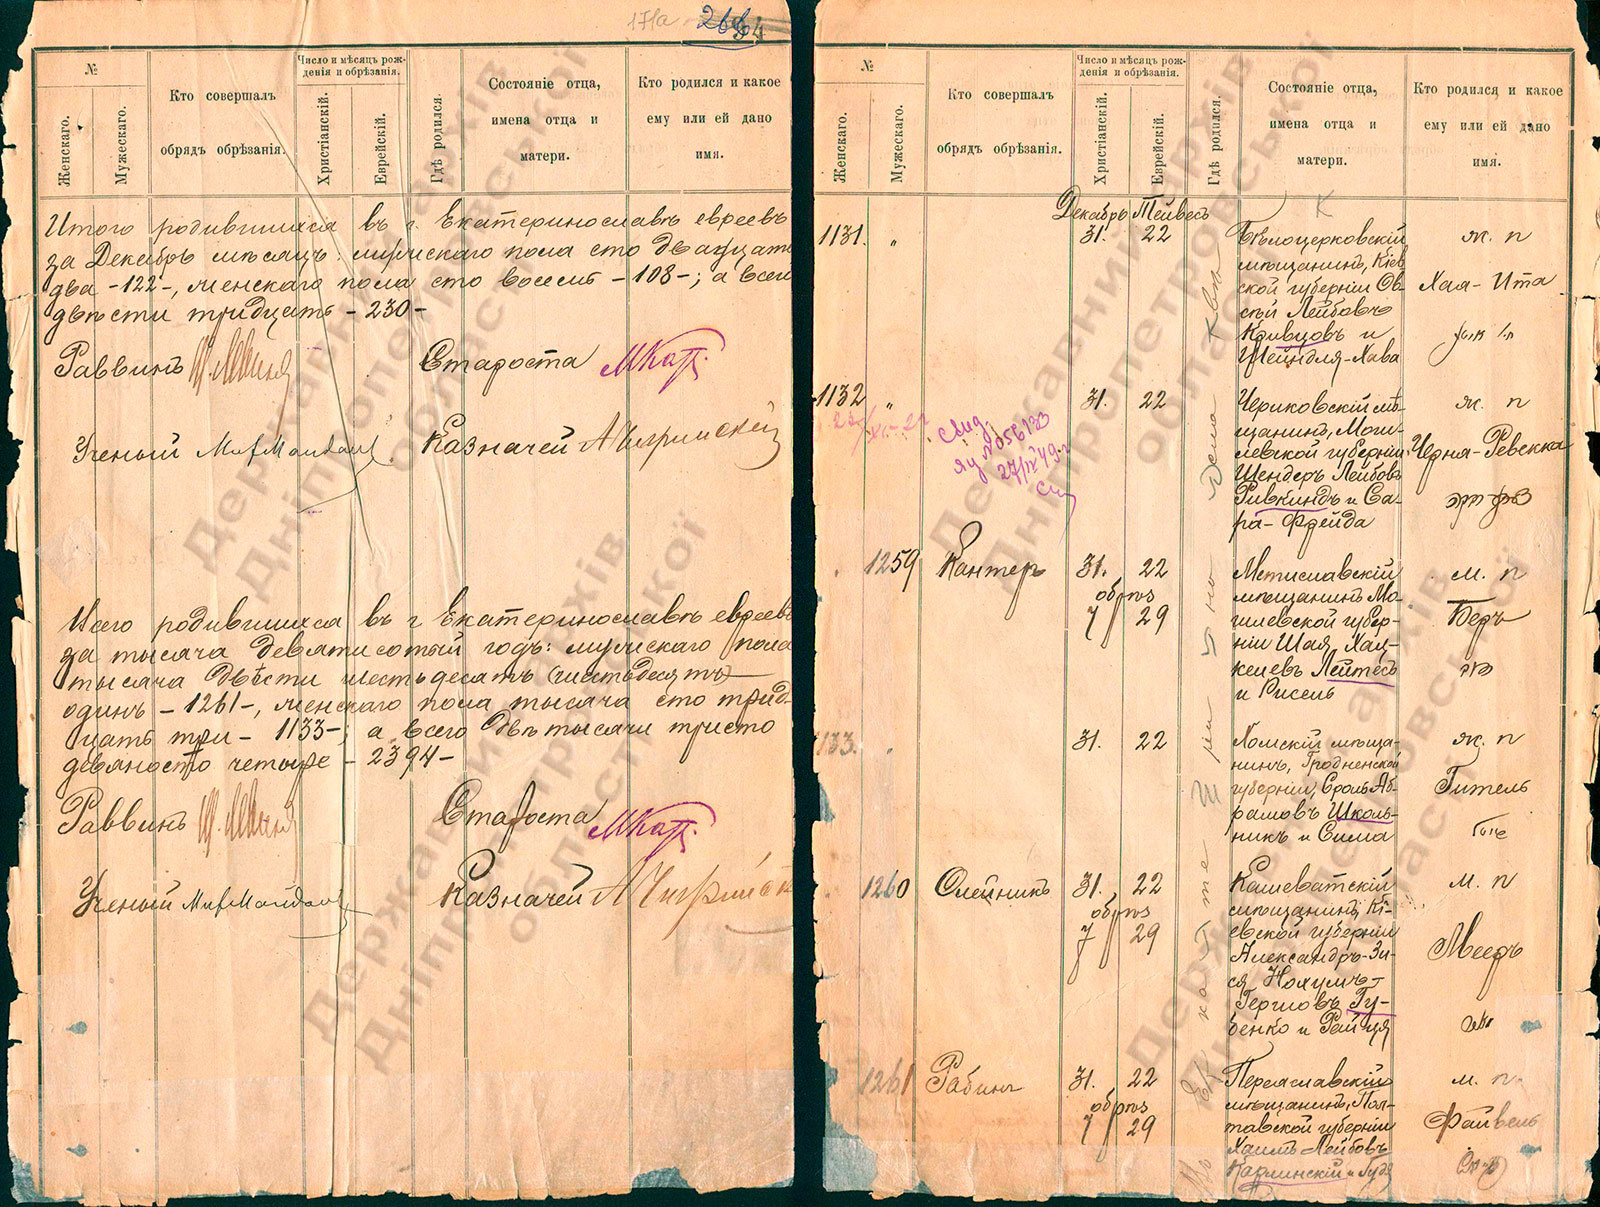 171а 264
№
Женскаго.
Мужескаго.
Кто совершалъ
обрядъ обрѣзанія.
Число и мѣсяцъ рож-
денія и обрѣзанія.
Христіанскій.
Еврейскій.
Гдѣ родился.
Состояніе отца,
имена отца и
матери.
Кто родился и какое
ему или ей дано
имя.
Итого родившихся въ г. Екатеринославѣ евреевъ
за Декабрь мѣсяцъ: мужскаго пола сто двадцать
два -122-, женскаго пола сто восемь -108-; а всего
двѣсти тридцать -230-
Раввинъ
Староста
Ученый
Казначей
Всего родившихся въ г. Екатеринославѣ евреевъ
за тысяча девятисотый годъ: мужскаго пола
тысяча двѣсти шестьдесятъ (шестьдесятъ)
одинъ -1261-, женскаго пола тысяча сто трид-
цать три -1133-; а всего двѣ тысячи триста
девяносто четыре -2394-
Раввинъ
Староста
Ученый
Казначей
№
Женскаго.
Мужескаго.
Кто совершалъ
обрядъ обрѣзанія.
Число и мѣсяцъ рож-
денія и обрѣзанія.
Христіанскій.
Еврейскій.
Гдѣ родился.
Состояніе отца,
имена отца и
матери.
Кто родился и какое
ему или ей дано
имя.
Декабрь Тейвесъ
1131. " 31. 22
Бѣлоцерковскій
мѣщанинъ, Кіев-
ской губерніи Ов-
сѣй Лейбовъ
Кривцовъ и
Шейндля-Хава
ж. п
Хая-Ита
1132 " 31. 22
Чериковскій мѣ-
щанинъ, Моги-
левской губерніи
Шендеръ Лейбовъ
Ривкиндъ и Са-
ра-Фрейда
ж. п
Черня-Ревекка
1259 Кантеръ 31. 22
обрѣз
7 29
Мстиславскій
мѣщанинъ Мо-
гилевской губер-
ніи Шая Хац-
келевъ Лейтесъ
и Рисель
м. п
Беръ
1133. " 31. 22
мѣща-
нинъ, Гродненской
губерніи, Сроль Аб-
рамовъ Школь-
никъ и Сима
ж. п
Гитель
1260 Олейникъ 31. 22
обрѣз
7 29
Кашеватскій
мѣщанинъ, Кі-
евской губерніи
Александръ-Зи-
ся Нохумъ-
Гершовъ Гу-
бенко и Райця
м. п
Мееръ
1261 Рабинъ 31. 22
обрѣз
7 29
Переяславскій
мѣщанинъ, Пол-
тавской губерніи
Хаимъ-Лейбовъ
Карлинскій и Гудя
м. п.
Файвель
Державний архів
Дніпропетровської
області